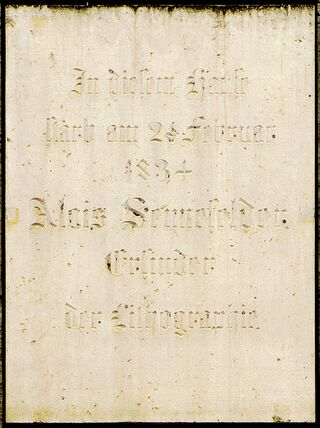 In diesem Hause
starb am 26 Februar
1834
Alois Sennefelder.
Erfinder
der Lithographie.